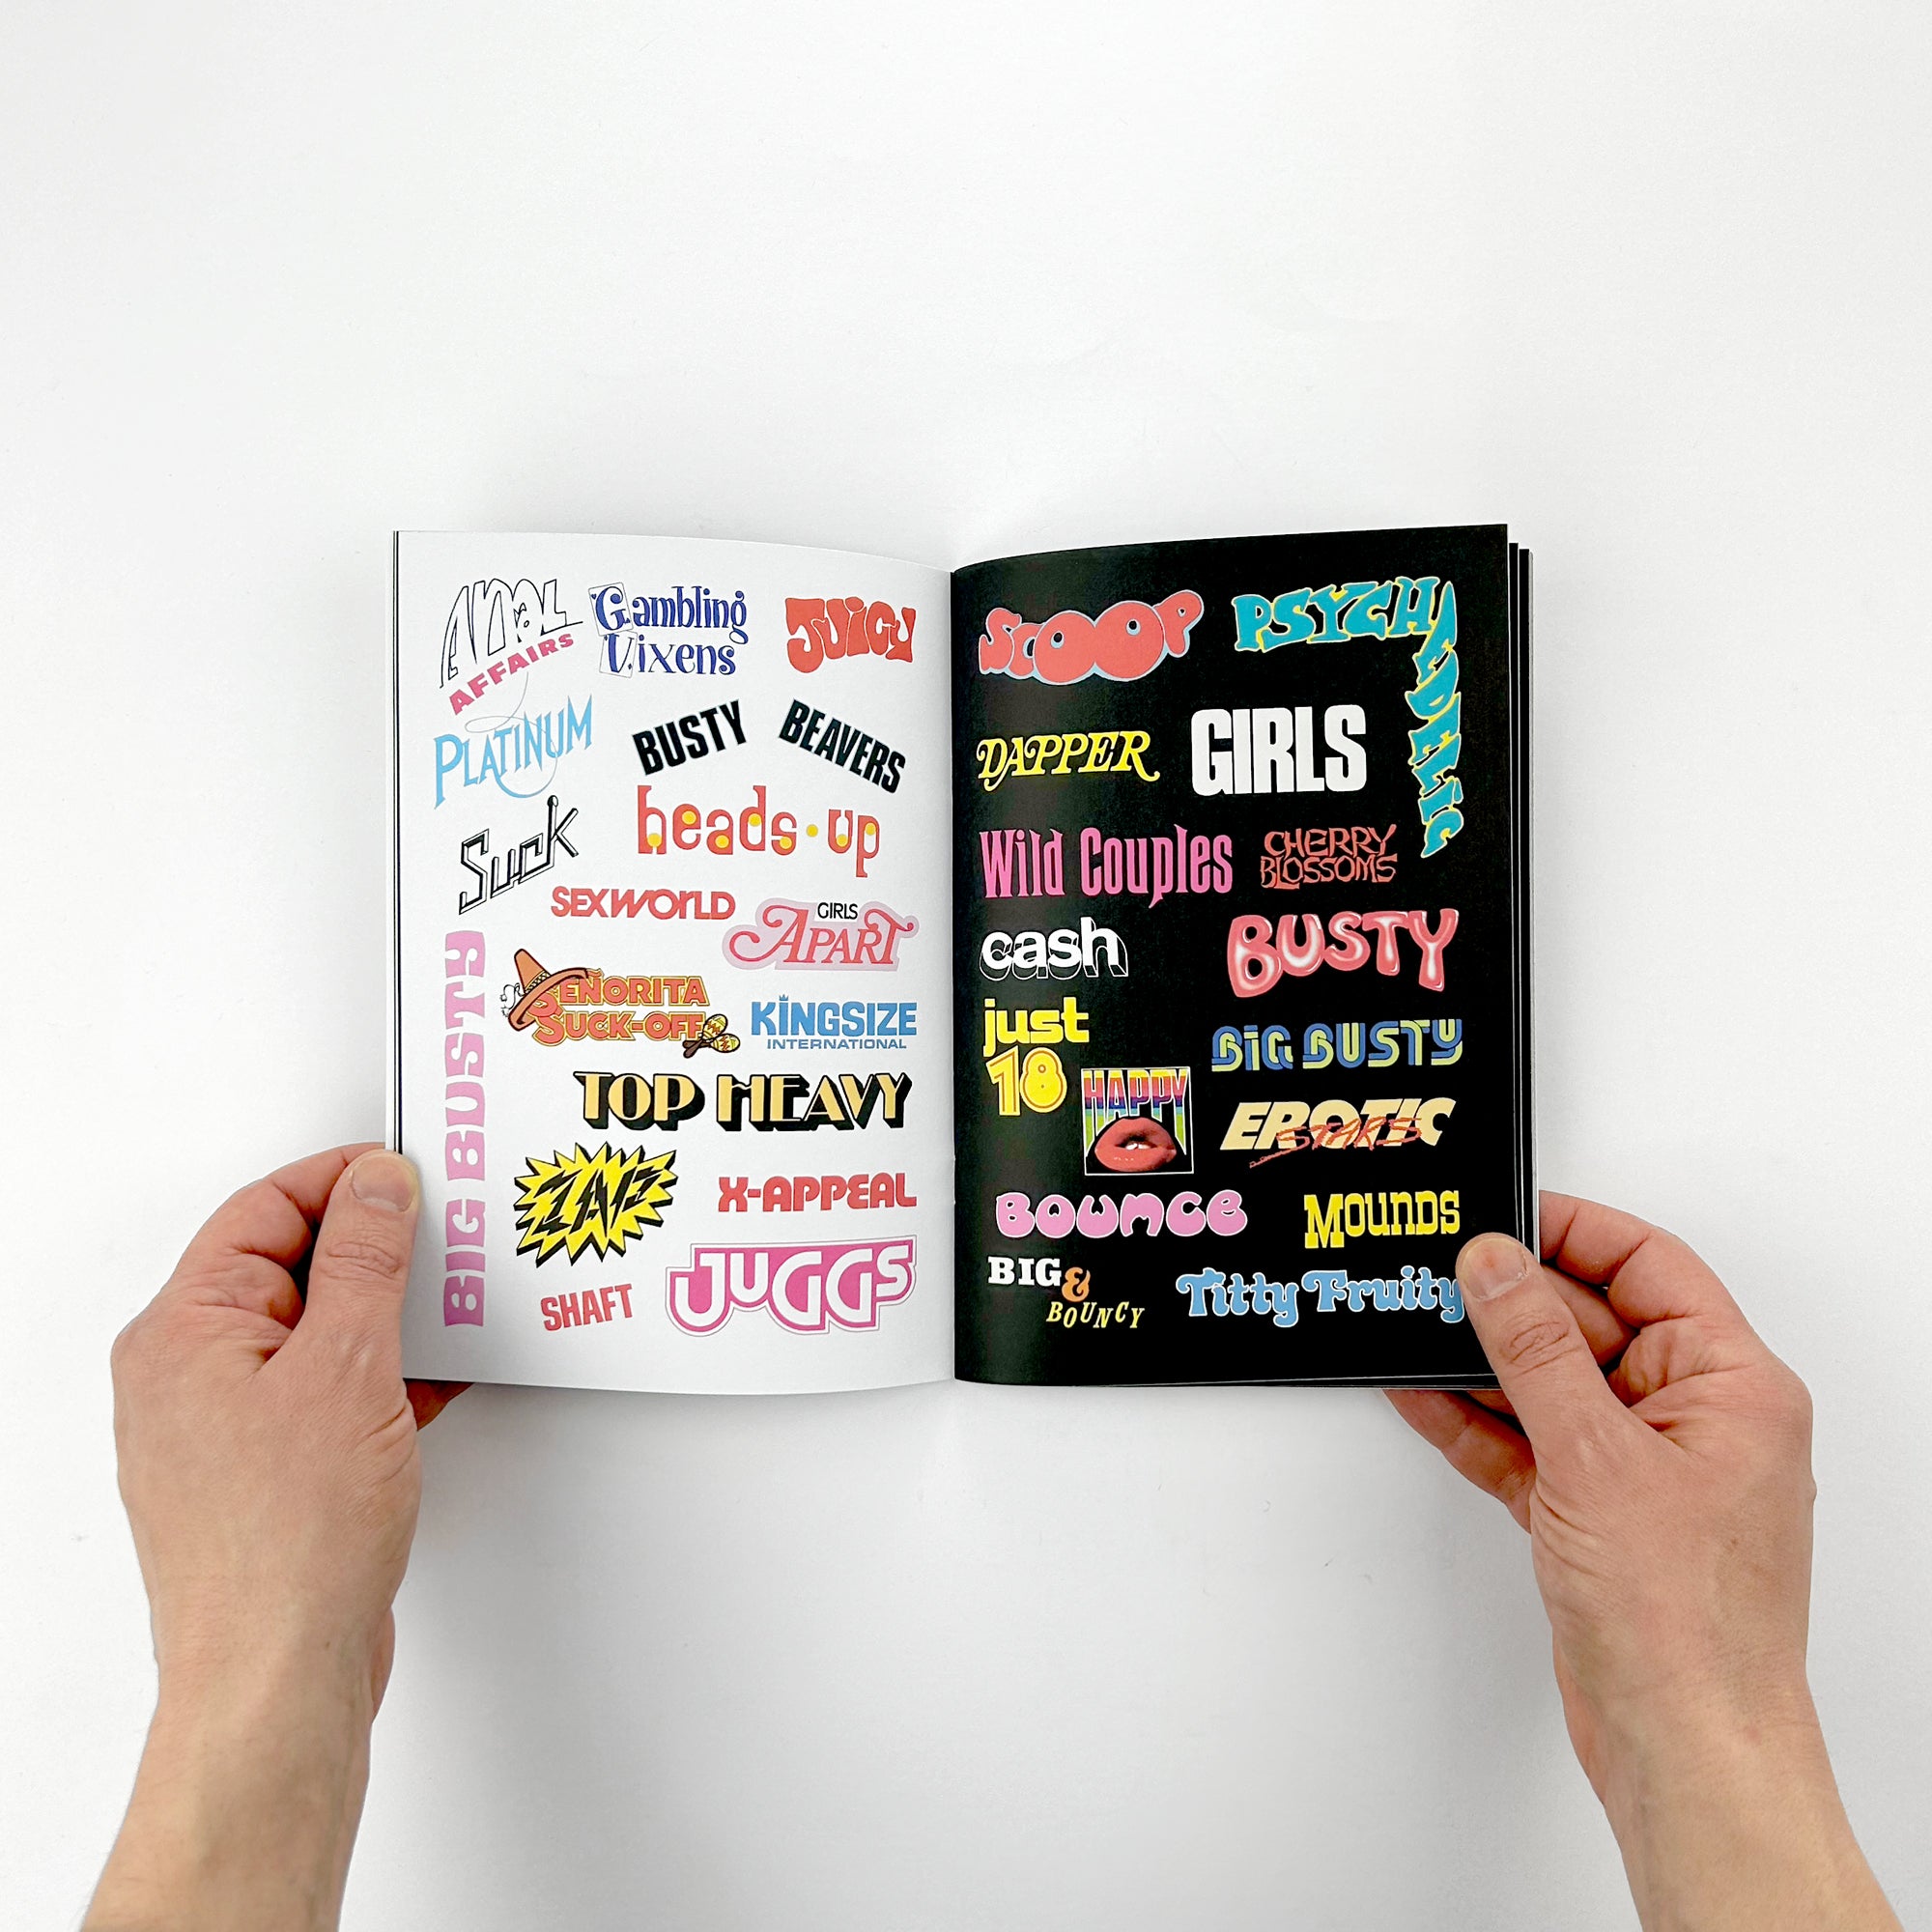 Anal
AFFAIRS
Gambling
Vixens
JUICY
PLATINUM
BUSTY BEAVERS
Suck
heads·up
SEXWORLD
GIRLS
APART
BIG BUSTY
SEÑORITA
SUCK-OFF
KINGSIZE
INTERNATIONAL
TOP HEAVY
X-APPEAL
SHAFT
JUGGS
SCOOP
PSYCHEDELIC
DAPPER
GIRLS
Wild Couples
CHERRY
BLOSSOMS
cash
BUSTY
just
18
HAPPY
BIG BUSTY
EROTIC
STARS
BOUNCE
MOUNDS
BIG &
BOUNCY
Titty Fruity